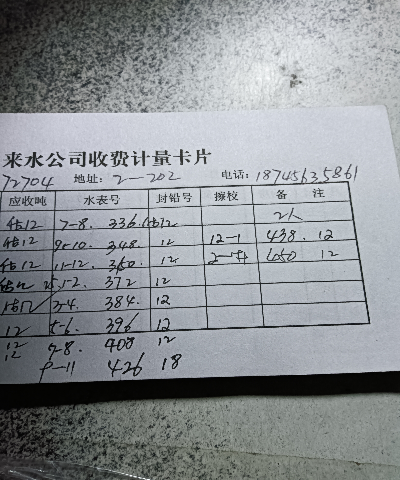 来水公司收费计量卡片
72704 地址: 2-202 电话: 18745635861
应收吨 水表号 封铅号 擦校 备 注
估12 7-8. 336 估12 2人
估12 9-10. 348 12 12-1 438. 12
估12 11-12. 360. 12 450 12
1-2. 372 12
3-4. 384 12
12 5-6. 396 12
12 7-8. 408 12
12 9-11 426 18